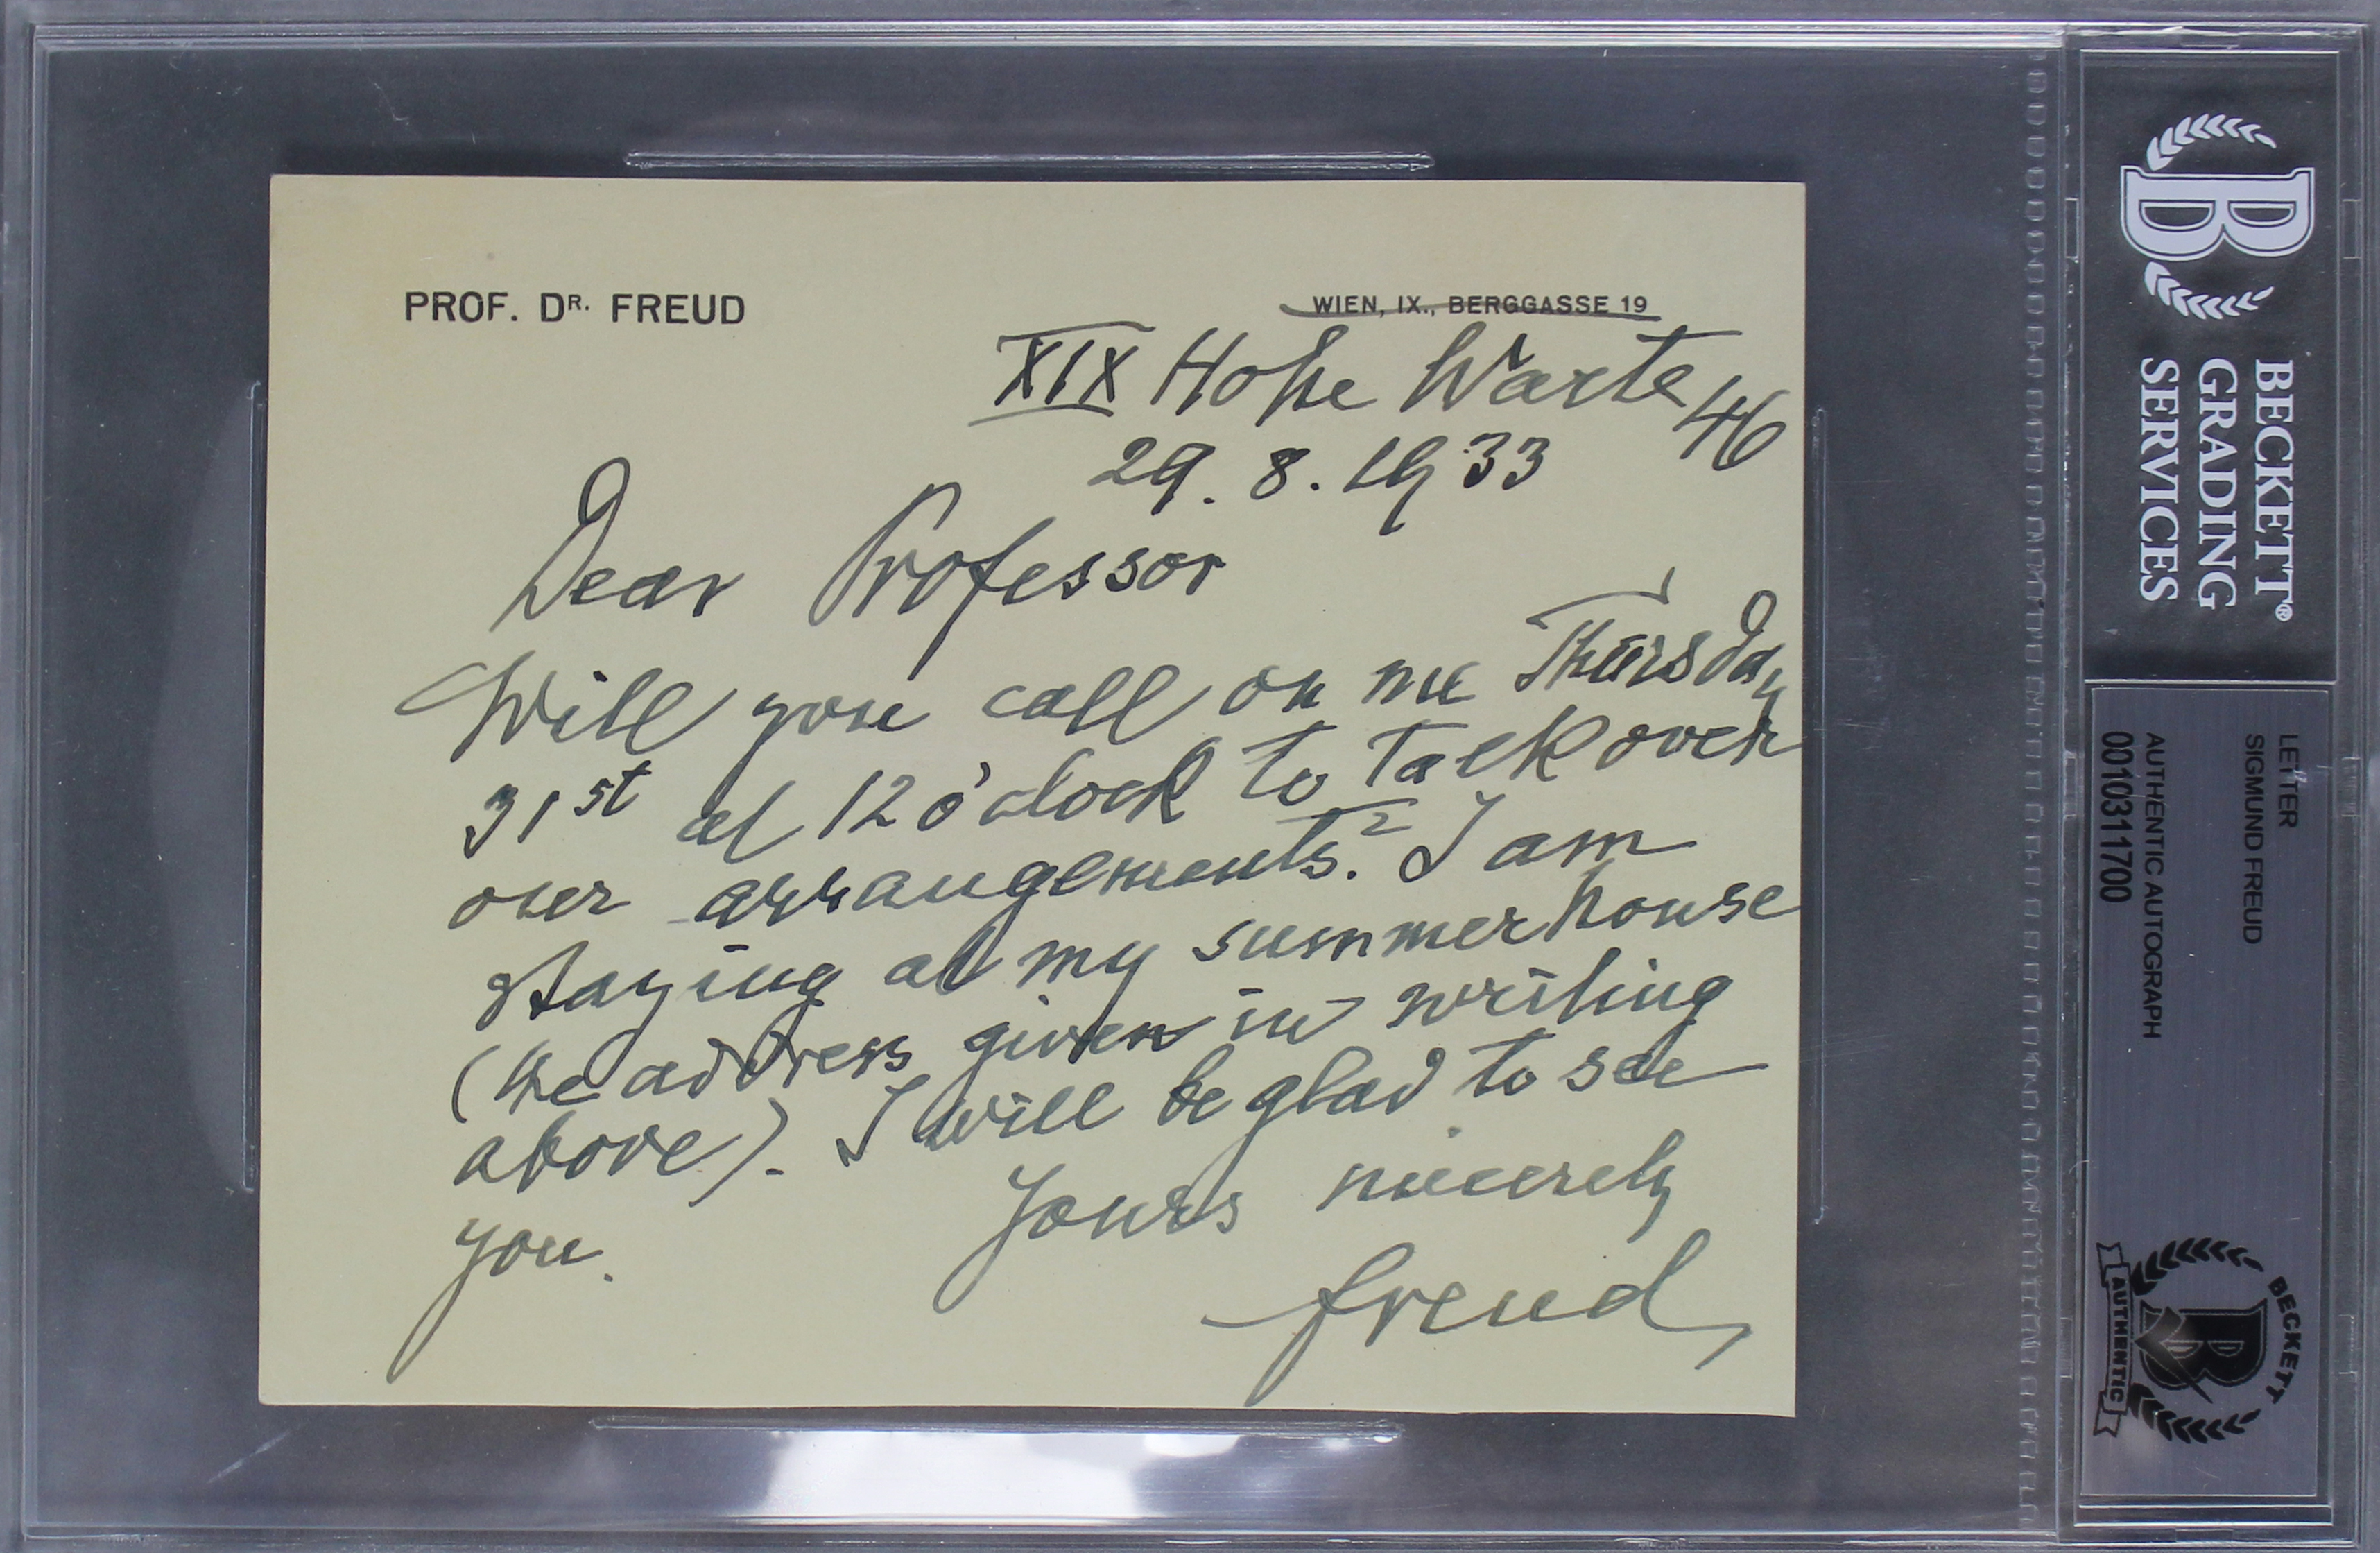 PROF. DR. FREUD
WIEN, IX., BERGGASSE 19
XIX Hohe Warte 46
29. 8. 1933
Dear Professor
Will you call on me Thursday
31st at 12 o'clock to talk over
our arrangements? I am
staying at my summerhouse
(the address given in writing
above). I will be glad to see
you.
Yours sincerely
Freud
BECKETT®
GRADING
SERVICES
LETTER
SIGMUND FREUD
AUTHENTIC AUTOGRAPH
0010311700
BECKETT
AUTHENTIC